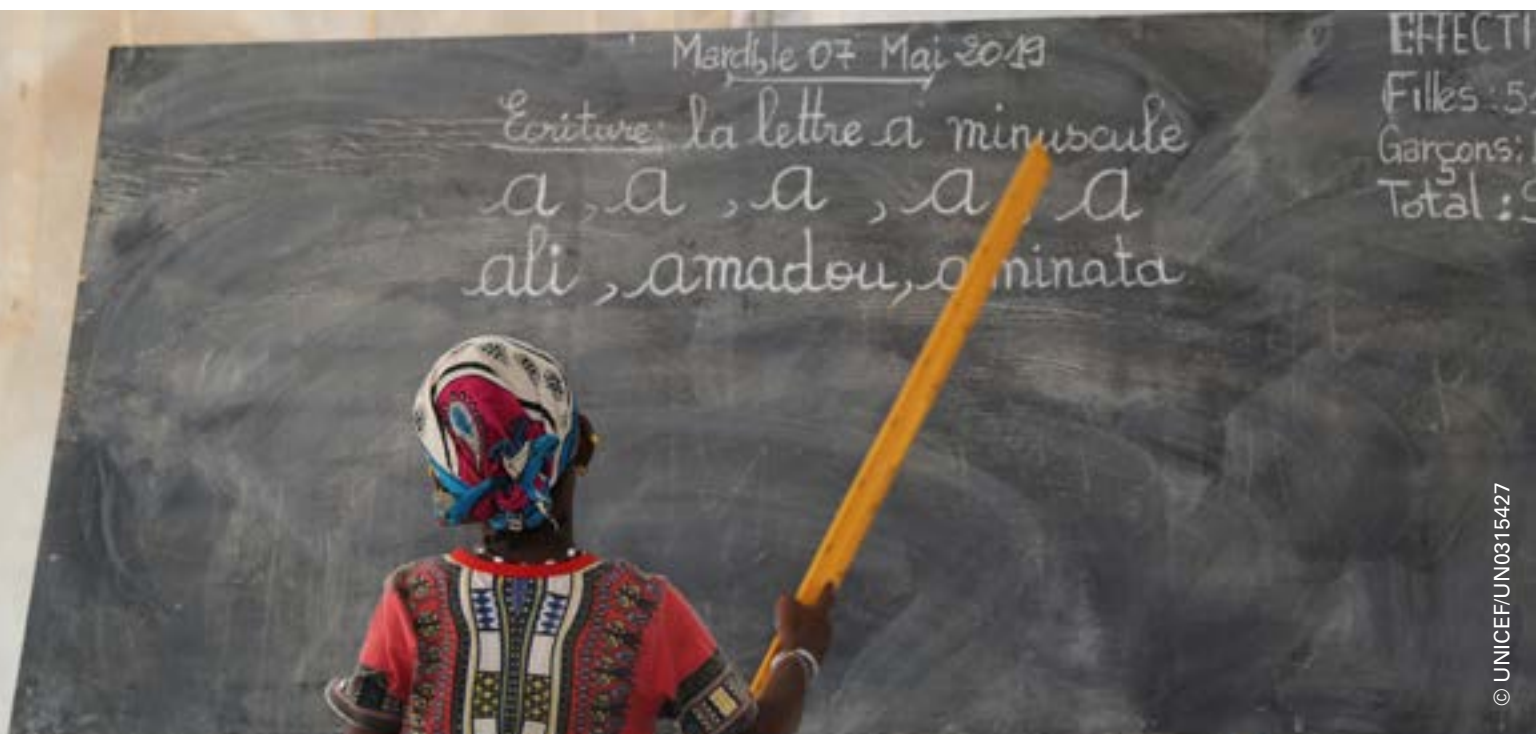 Mardi, le 07 Mai 2019
Ecriture: la lettre a minuscule
a , a , a , a , a
ali , amadou, aminata
EFFECTI
Filles : 5
Garçons:
Total :
© UNICEF/UN0315427